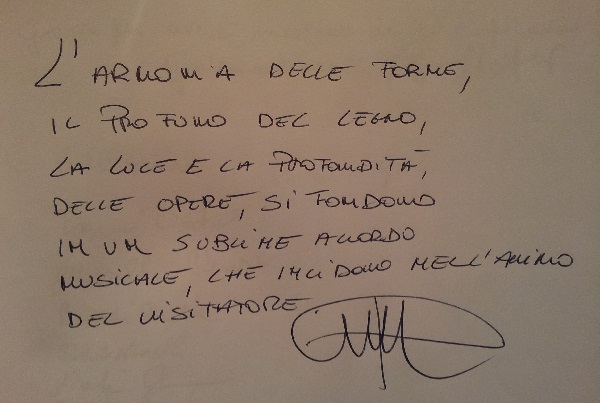 L'ARMONIA DELLE FORME,
IL PROFUMO DEL LEGNO,
LA LUCE E LA PROFONDITÀ,
DELLE OPERE, SI FONDONO
IN UN SUBLIME ACCORDO
MUSICALE, CHE INCIDONO NELL'ANIMO
DEL VISITATORE